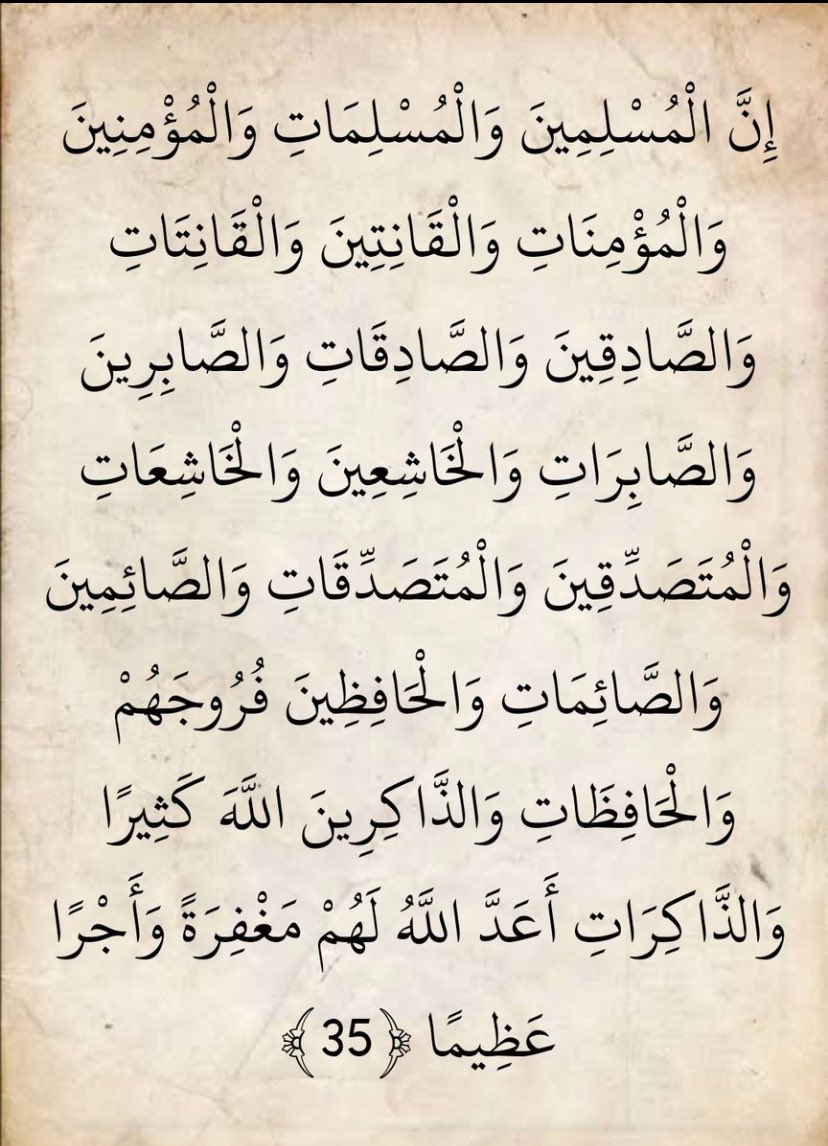 إِنَّ الْمُسْلِمِينَ وَالْمُسْلِمَاتِ وَالْمُؤْمِنِينَ
وَالْمُؤْمِنَاتِ وَالْقَانِتِينَ وَالْقَانِتَاتِ
وَالصَّادِقِينَ وَالصَّادِقَاتِ وَالصَّابِرِينَ
وَالصَّابِرَاتِ وَالْخَاشِعِينَ وَالْخَاشِعَاتِ
وَالْمُتَصَدِّقِينَ وَالْمُتَصَدِّقَاتِ وَالصَّائِمِينَ
وَالصَّائِمَاتِ وَالْحَافِظِينَ فُرُوجَهُمْ
وَالْحَافِظَاتِ وَالذَّاكِرِينَ اللَّهَ كَثِيرًا
وَالذَّاكِرَاتِ أَعَدَّ اللَّهُ لَهُمْ مَغْفِرَةً وَأَجْرًا
عَظِيمًا ﴿35﴾